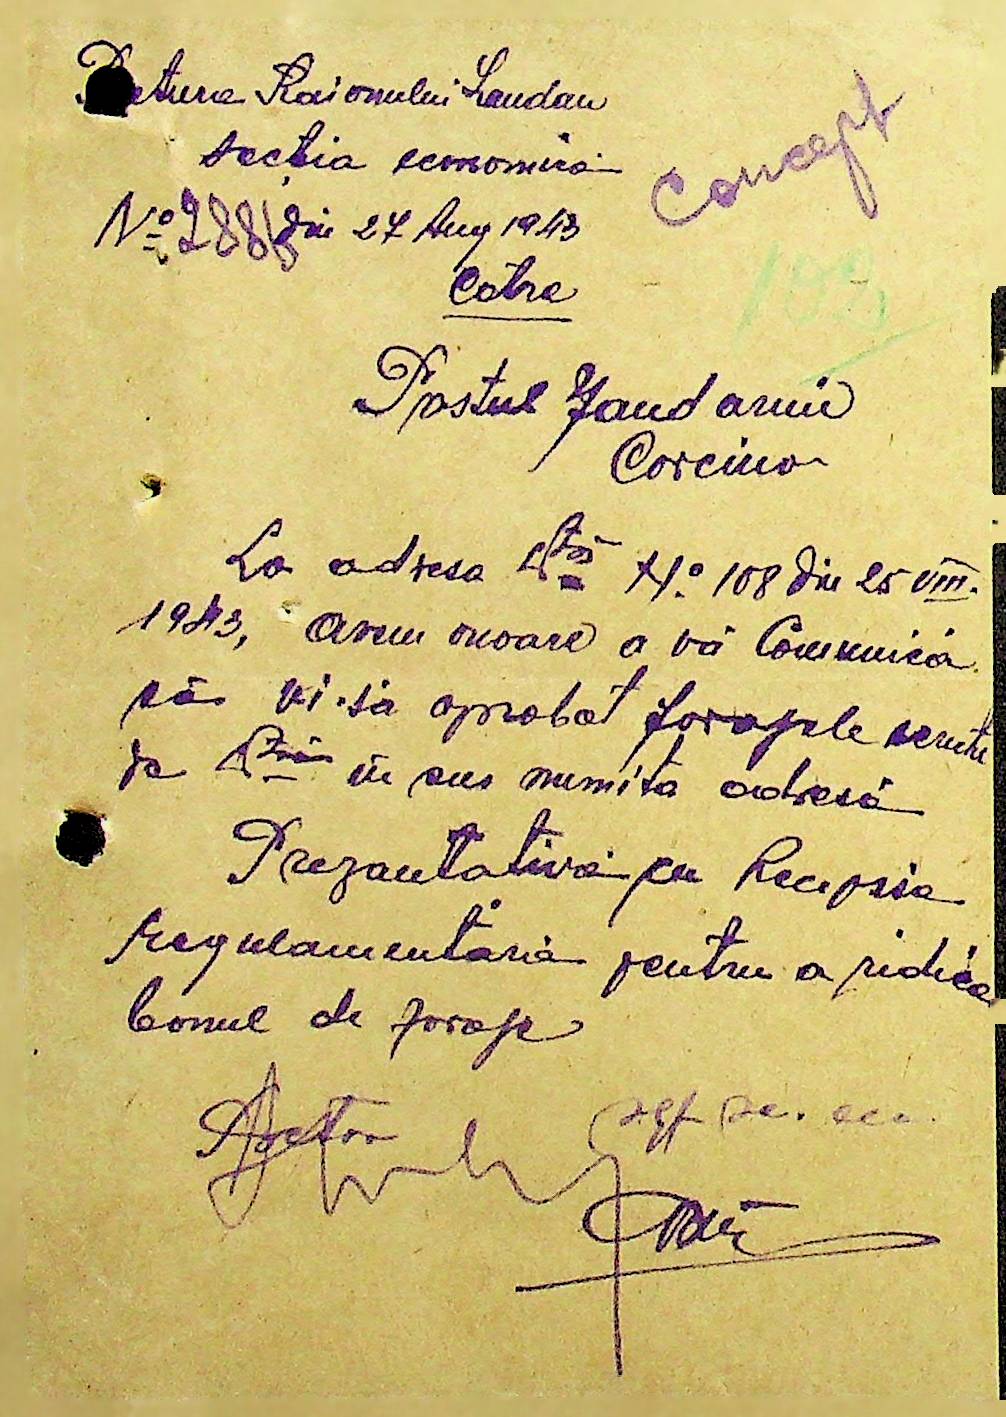 Pretura Raionului Landau
Secția economică
Concept
No 2886 din 27 Aug 1943
Către
Postul Jandarmi
Corcino
La adresa Dvs No. 108 din 25 VIII.
1943, avem onoare a vă Comunica
că vi-sa aprobat forajele cerute
de Dvs in sus numita adresă
Prezantativă cu Recepsia
regulamentară pentru a ridica
bonul de foraje
Pretor
șef se. ec.